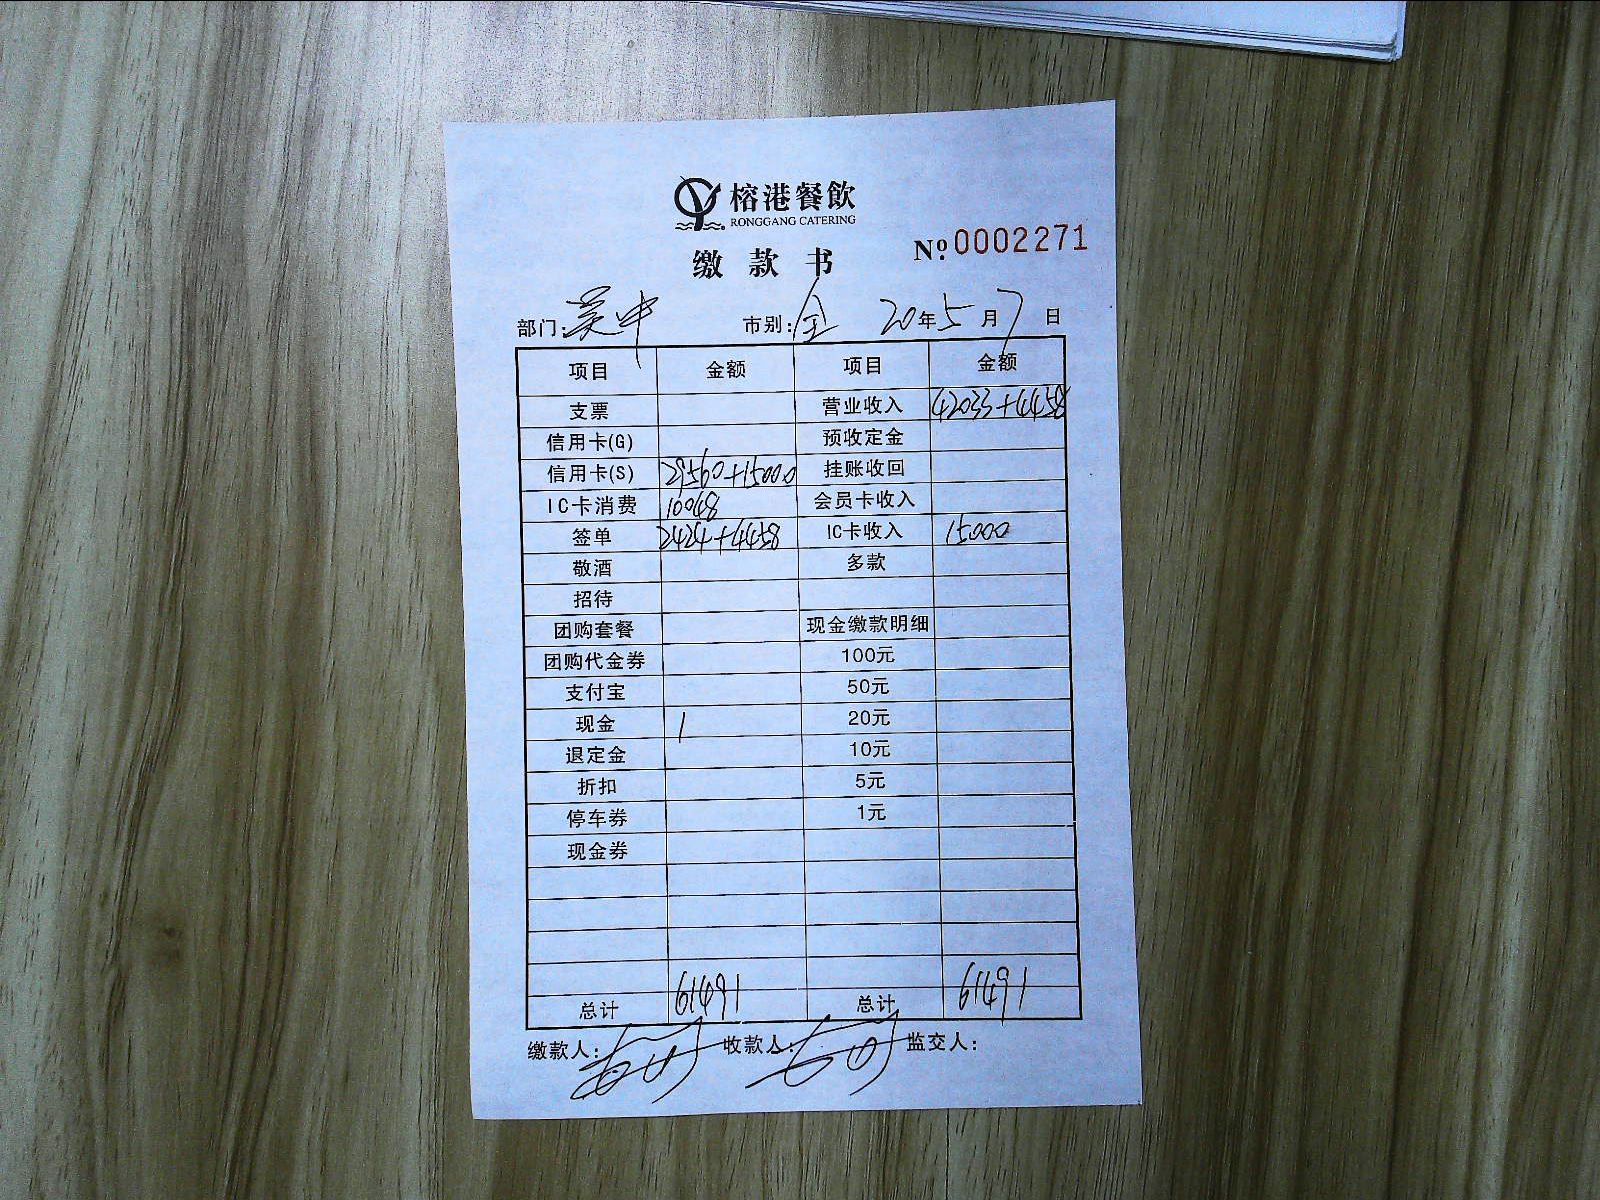 榕港餐飲
RONGGANG CATERING
缴款书 №0002271
部门:吴中 市别:全 20年5月7日
项目 金额 项目 金额
支票 营业收入 42033+4458
信用卡(G) 预收定金
信用卡(S) 29560+15000 挂账收回
IC卡消费 10048 会员卡收入
签单 2424+4458 IC卡收入 15000
敬酒 多款
招待
团购套餐 现金缴款明细
团购代金券 100元
支付宝 50元
现金 1 20元
退定金 10元
折扣 5元
停车券 1元
现金券
总计 61491 总计 61491
缴款人: 收款人: 监交人: